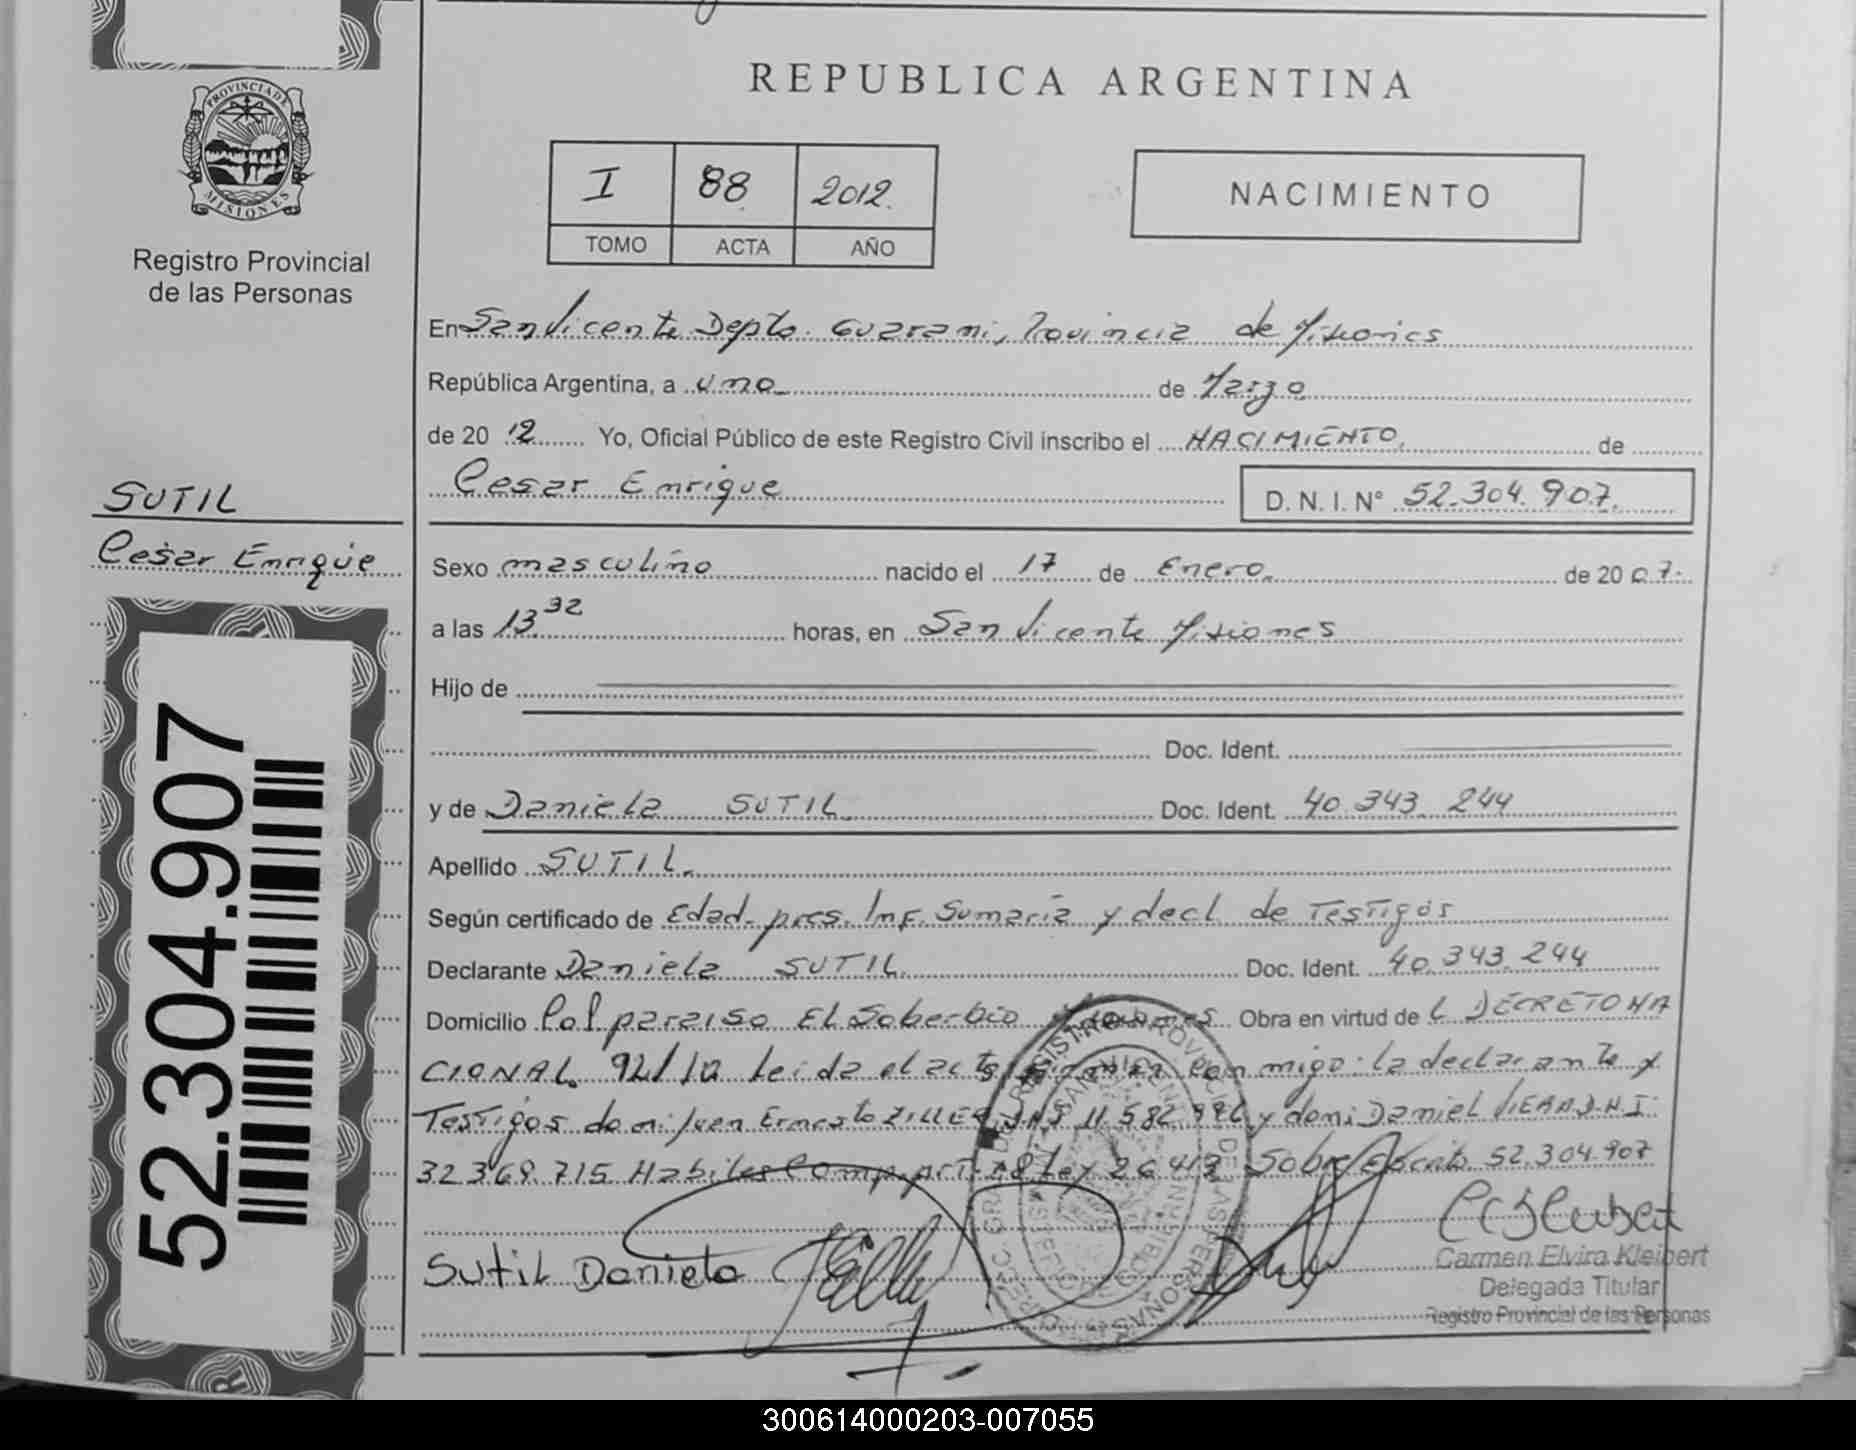 REPUBLICA ARGENTINA
PROVINCIA DE MISIONES
Registro Provincial
de las Personas
I 88 2012.
TOMO ACTA AÑO
NACIMIENTO
En San Vicente Depto. Guarami, Provincia de Misiones
República Argentina, a uno de Marzo
de 20 12 Yo, Oficial Público de este Registro Civil inscribo el NACIMIENTO. de
Cesar Enrique D. N. I. N° 52.304.907.
SUTIL
Cesar Enrique
Sexo masculino nacido el 17 de Enero. de 2007.
a las 13.32 horas, en San Vicente Misiones
Hijo de
Doc. Ident.
y de Daniela SUTIL. Doc. Ident. 40.343.244
Apellido SUTIL.
Según certificado de Edad. pres. Inf. Sumaria y decl. de Testigos
Declarante Daniela SUTIL. Doc. Ident. 40.343.244
Domicilio Col paraiso El Soberbio Misiones. Obra en virtud de L DECRETO NA
CIONAL. 92/10 Leida el acta conmigo: la declarante y
Testigos don: Juan Ernesto ZILLER D.N.I 11.582. y don: Daniel VIERA D.N.I.
32.369.715. Habiles Comp. art. Ley 26.413 Sobre 52.304.907
Sutil Daniela
Carmen Elvira Kleibert
Delegada Titular
Registro Provincial de las Personas
52.304.907
300614000203-007055